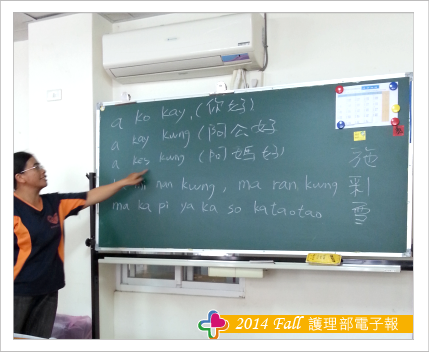 a ko kay, (你好)
a kay kung (阿公好
a kes kung (阿媽好)
nan kung, ma ran kung
ma ka pi ya ka so kataotao
施彩雪
2014 Fall 護理部電子報